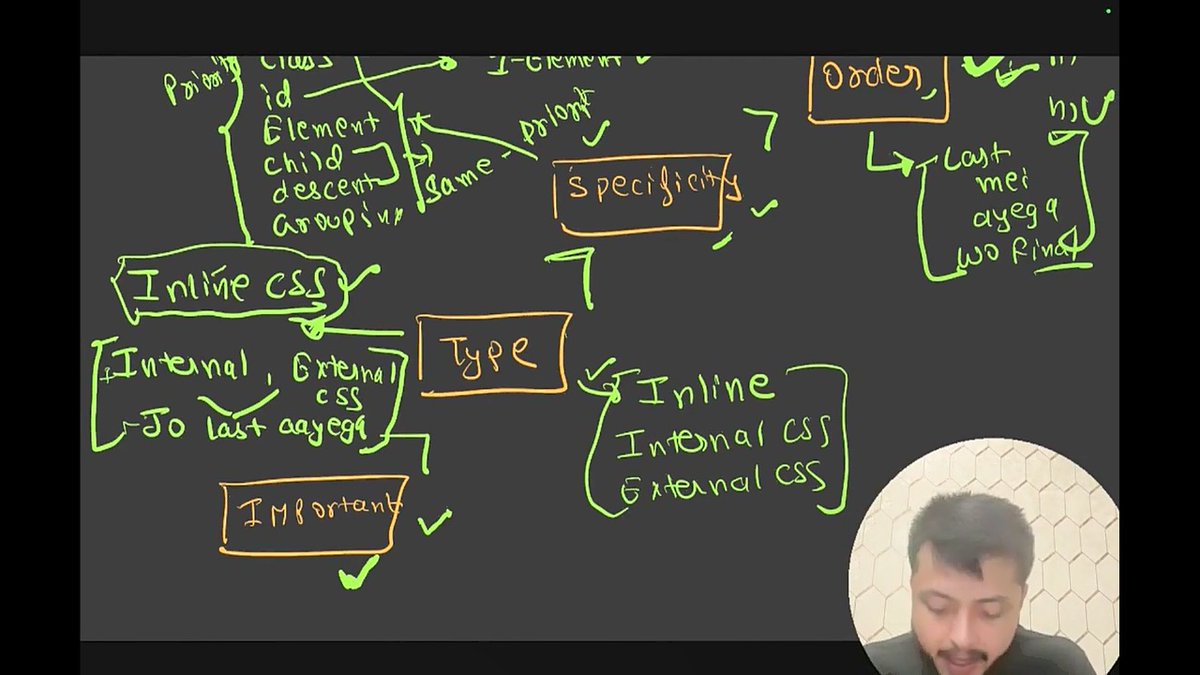 Class
1-Element
Priority
id
Element
child
descent
Grouping
Same - priority
Order,
Specificity
Last
mei
ayega
wo final
Inline CSS
Type
Internal, External
CSS
Jo last aayega
Inline
Internal CSS
External CSS
Important